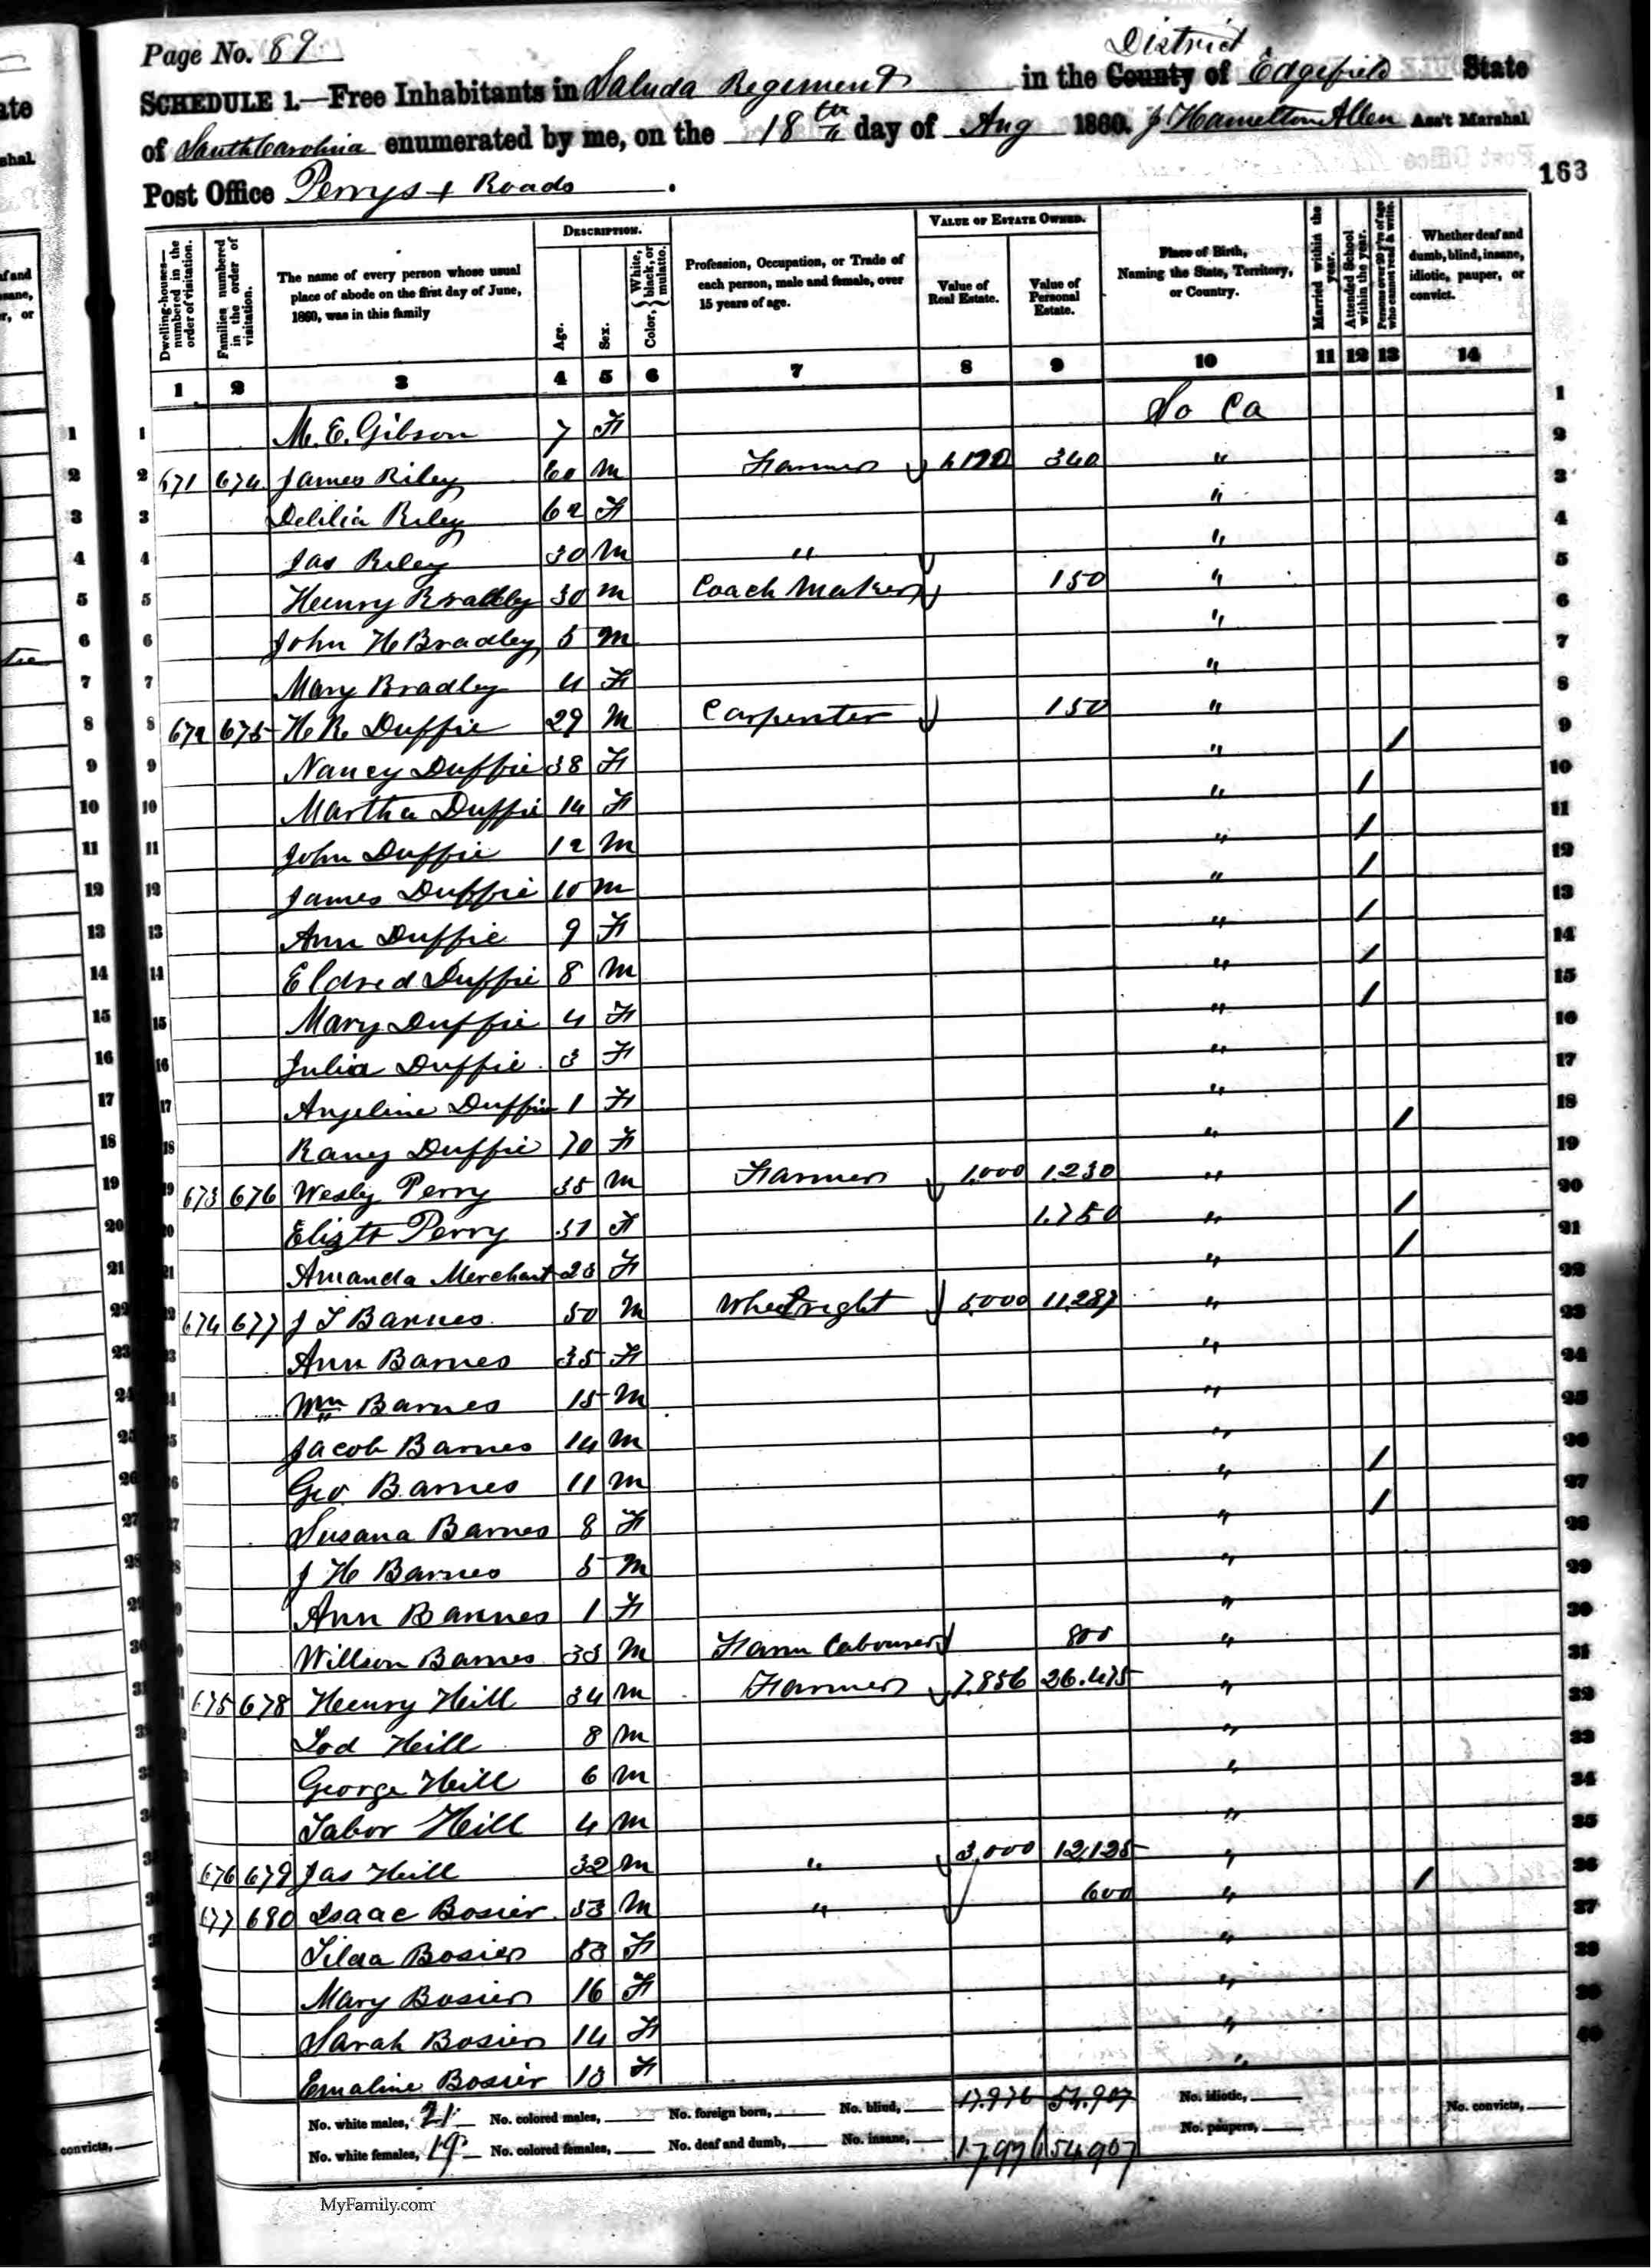 Page No. 89
SCHEDULE 1.—Free Inhabitants in Saluda Regiment in the County District of Edgefield State
of South Carolina enumerated by me, on the 18th day of Aug 1860. J Hamelton Allen Ass't Marshal
Post Office Perrys + Roads.
163
DESCRIPTION. VALUE OF ESTATE OWNED.
Dwelling-houses—numbered in the order of visitation. Families numbered in the order of visitation. The name of every person whose usual place of abode on the first day of June, 1860, was in this family Age. Sex. Color, { White, black, or mulatto. Profession, Occupation, or Trade of each person, male and female, over 15 years of age. Value of Real Estate. Value of Personal Estate. Place of Birth, Naming the State, Territory, or Country. Married within the year. Attended School within the year. Persons over 20 y'rs of age who cannot read & write. Whether deaf and dumb, blind, insane, idiotic, pauper, or convict.
1 2 3 4 5 6 7 8 9 10 11 12 13 14
1 M. E. Gibson 7 F So Ca 1
2 671 674 James Riley 60 M Farmer 340 " 2
3 Delilia Riley 62 F " 3
4 Jas Riley 30 M " " 4
5 Henry Bradley 30 M Coach Maker 150 " 5
6 John H Bradley 5 M " 6
7 Mary Bradley 4 F " 7
8 672 675 H. R. Duffie 29 M Carpenter 150 " 8
9 Nancy Duffie 38 F " / 9
10 Martha Duffie 14 F " / 10
11 John Duffie 12 M " / 11
12 James Duffie 10 M " / 12
13 Ann Duffie 9 F " / 13
14 Eldred Duffie 8 M " / 14
15 Mary Duffie 4 F " / 15
16 Julia Duffie 3 F " 16
17 Angeline Duffie 1 F " 17
18 Rany Duffie 70 F " / 18
19 673 676 Wesly Perry 35 M Farmer 1,000 1.230 " 19
20 Elizth Perry 37 F 1.750 " / 20
21 Amanda Merchant 23 F " / 21
22 674 677 J T Barnes 50 M Wheelright 5,000 11,287 " 22
23 Ann Barnes 35 F " 23
24 Wm Barnes 15 M " 24
25 Jacob Barnes 14 M " 25
26 Geo Barnes 11 M " / 26
27 Susana Barnes 8 F " / 27
28 J H Barnes 5 M " 28
29 Ann Barnes 1 F " 29
30 Willson Barnes 33 M Farm Labourer 800 " 30
31 675 678 Henry Hill 34 M Farmer 7.856 26.475 " 31
Lod Hill 8 M " 32
George Hill 6 M " 33
Tabor Hill 4 M " 34
676 679 Jas Hill 32 M " 3,000 12,125 " 35
677 680 Isaac Bosier 53 M " 600 " / 36
Tilda Bosier 53 F " 37
Mary Bosier 16 F "
Sarah Bosier 14 F "
Emaline Bosier 13 F " 40
No. white males, 21 No. colored males, No. foreign born, No. blind, 17.976 54.907 No. idiotic, No. convicts,
No. white females, 19 No. colored females, No. deaf and dumb, No. insane, 17,976 54,907 No. paupers,
MyFamily.com